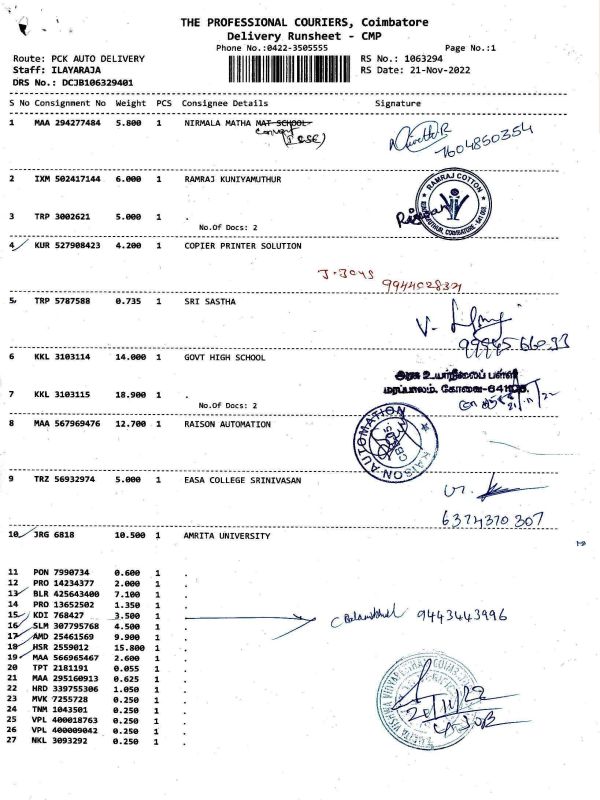 THE PROFESSIONAL COURIERS, Coimbatore
Delivery Runsheet - CMP
Phone No.:0422-3505555 Page No.:1
Route: PCK AUTO DELIVERY RS No.: 1063294
Staff: ILAYARAJA RS Date: 21-Nov-2022
DRS No.: DCJB106329401
S No Consignment No Weight PCS Consignee Details Signature
1 MAA 294277484 5.800 1 NIRMALA MATHA MAT SCHOOL
7604850354
2 IXM 502417144 6.000 1 RAMRAJ KUNIYAMUTHUR
RAMRAJ COTTON
3 TRP 3002621 5.000 1 .
No.Of Docs: 2
4 KUR 527908423 4.200 1 COPIER PRINTER SOLUTION
9944028371
5 TRP 5787588 0.735 1 SRI SASTHA
6 KKL 3103114 14.000 1 GOVT HIGH SCHOOL
அரசு உயர்நிலைப் பள்ளி
7 KKL 3103115 18.900 1 .
No.Of Docs: 2
8 MAA 567969476 12.700 1 RAISON AUTOMATION
RAISON AUTOMATION
9 TRZ 56932974 5.000 1 EASA COLLEGE SRINIVASAN
6374370307
10 JRG 6818 10.500 1 AMRITA UNIVERSITY
11 PON 7990734 0.600 1 .
12 PRO 14234377 2.000 1 .
13 BLR 425643400 7.100 1 .
14 PRO 13652502 1.350 1 .
15 KDI 768427 3.500 1 9443443996
16 SLM 307795768 4.500 1 .
17 AMD 25461569 9.900 1 .
18 HSR 2559012 15.800 1 .
19 MAA 566965467 2.600 1 .
20 TPT 2181191 0.055 1 .
21 MAA 295160913 0.625 1 .
22 HRD 339755306 1.050 1 .
23 MVK 7255728 0.250 1 .
24 TNM 1043501 0.250 1 .
25 VPL 400018763 0.250 1 .
26 VPL 400009042 0.250 1 .
27 NKL 3093292 0.250 1 .